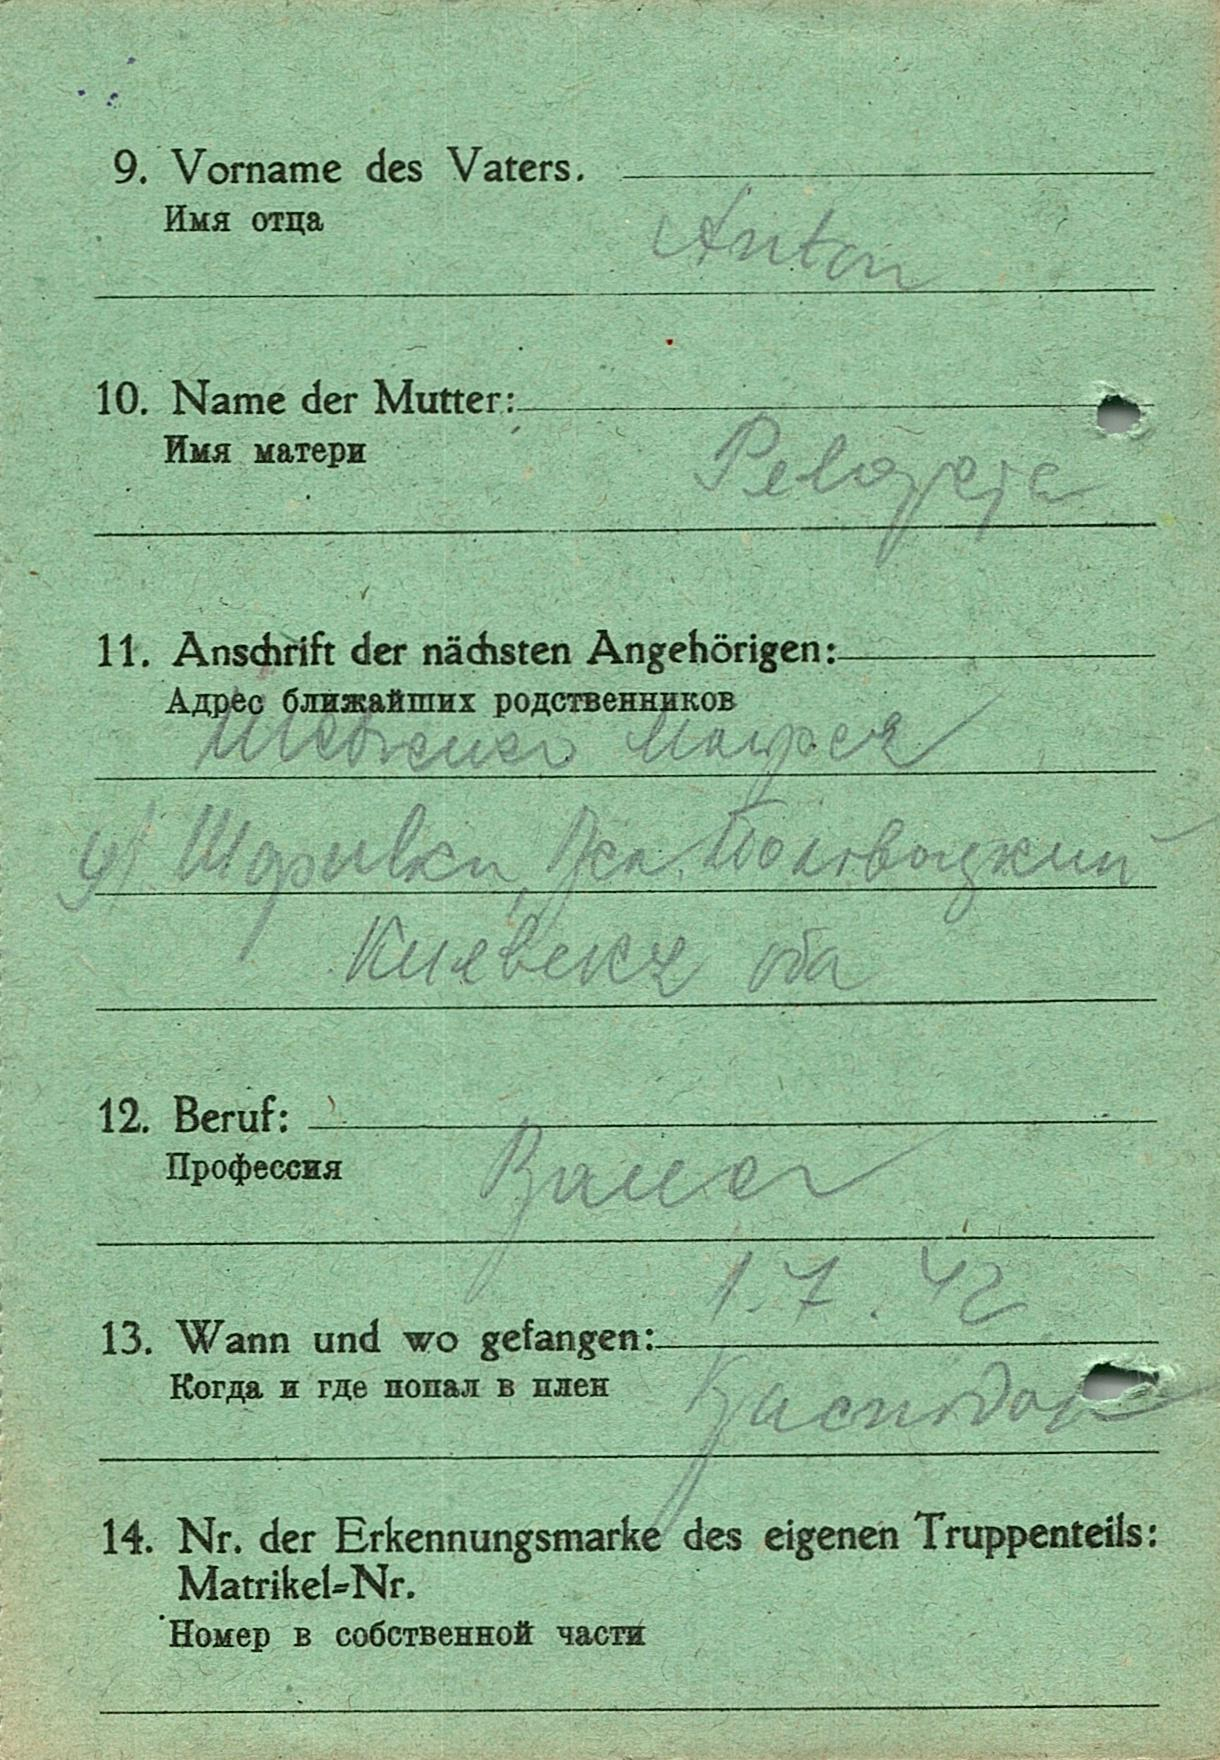 9. Vorname des Vaters.
Имя отца
Anton
10. Name der Mutter:
Имя матери
Pelageja
11. Anschrift der nächsten Angehörigen:
Адрес ближайших родственников
с/ Шаривка,
обл
12. Beruf:
Профессия
Bauer
1.7.42
13. Wann und wo gefangen:
Когда и где попал в плен
14. Nr. der Erkennungsmarke des eigenen Truppenteils:
Matrikel-Nr.
Номер в собственной части